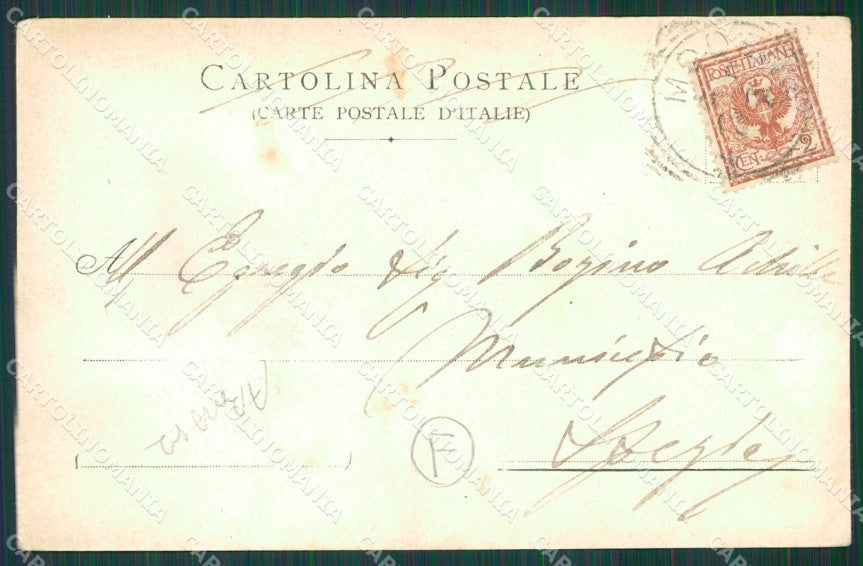 CARTOLINA POSTALE
(CARTE POSTALE D'ITALIE)
POSTE ITALIANE
CEN. 2
All Egregio Sig Bozino Achille
Municipio
Spezia
F
CARTOLINOMANIA